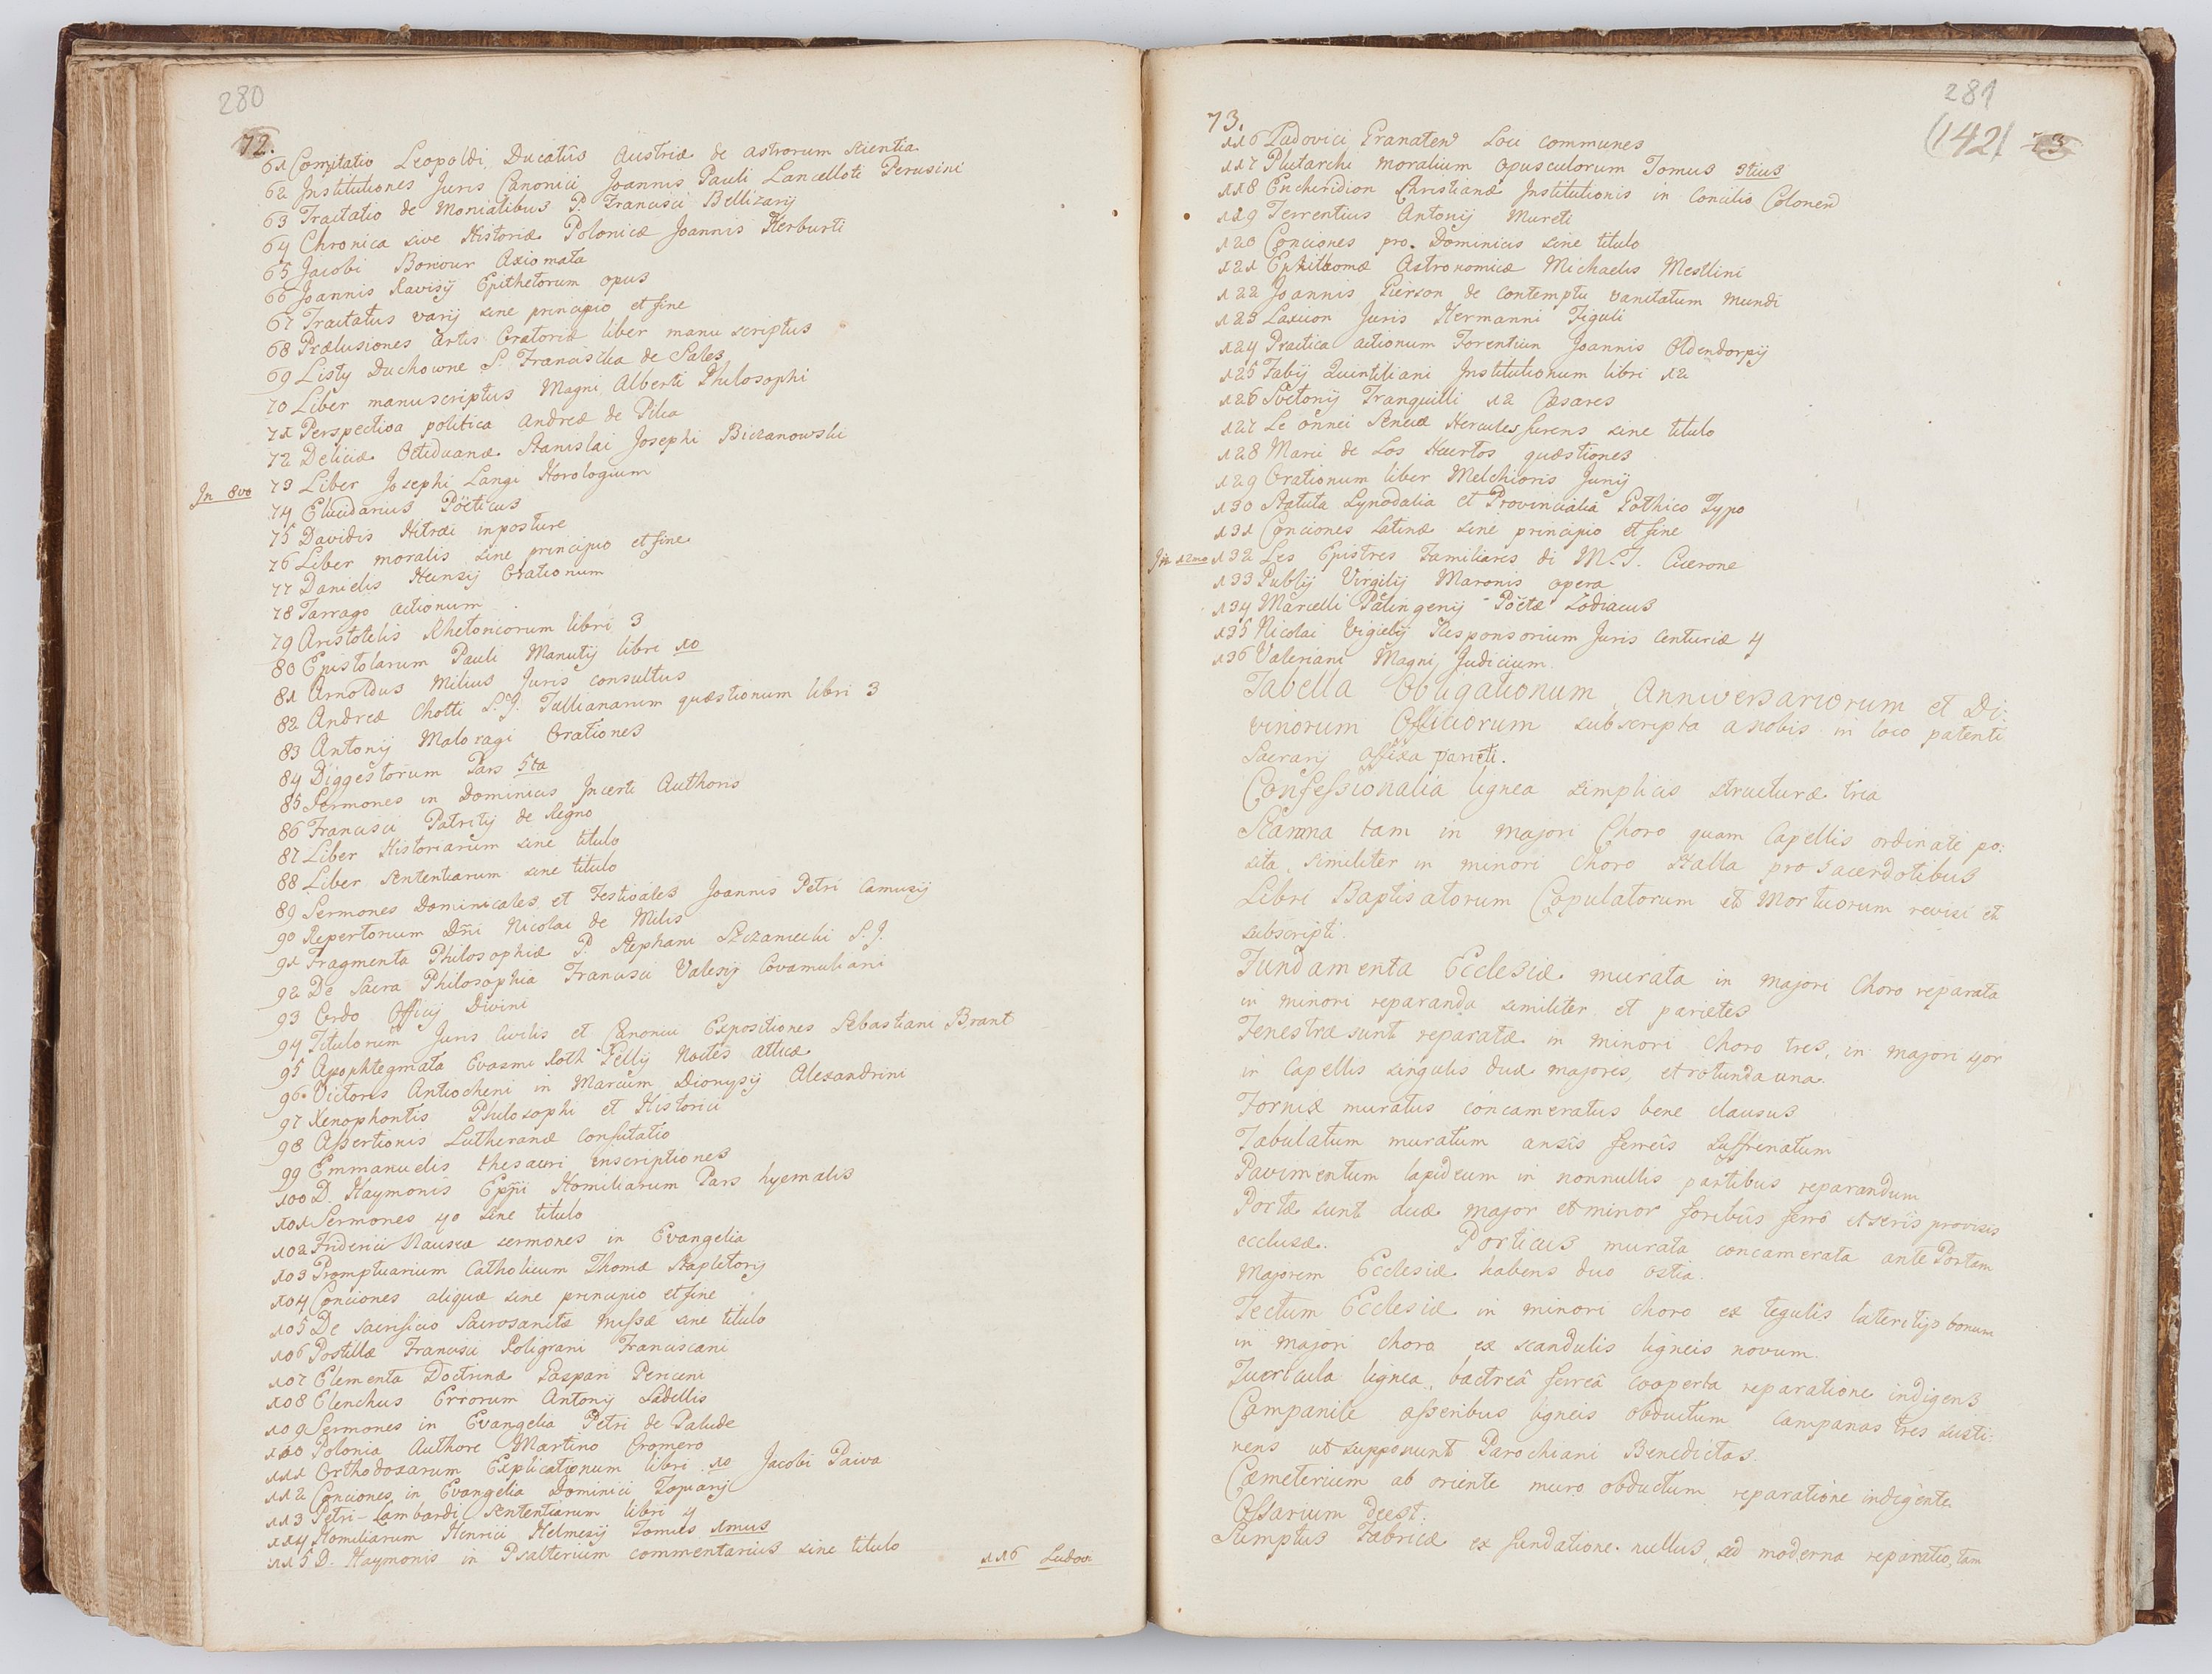 280
72.
61 Compitatio Leopoldi Ducatûs Austriæ de astrorum scientia
62 Institutiones Juris Canonici Joannis Pauli Lancelloti Perusini
63 Tractatio de Monialibus P. Francisci Bellizarij
64 Chronica sive Historiæ Polonicæ Joannis Herburti
65 Jacobi Bonour Axiomata
66 Joannis Ravisij Epithetorum opus
67 Tractatus varij sine principio et fine
68 Prælusiones Artis Oratoriæ liber manu scriptus
69 Listy Duchowne S. Franciszka de Sales
70 Liber manuscriptus Magni Alberti Philosophi
71 Perspectiva politica Andreæ de Pilca
72 Deliciæ Octiduanæ Stanislai Josephi Biezanowski
In 8vo 73 Liber Josephi Langi Horologium
74 Elucidarius Pöeticus
75 Davidis Hitræi inposture
76 Liber moralis sine principio et fine
77 Danielis Heinsij Orationum
78 Tarrago actionum
79 Aristotelis Rhetoricorum libri 3
80 Epistolarum Pauli Manutij libri 10
81 Arnoldus Milius Juris consultus
82 Andreæ Chotti S.J. Tullianarum quæstionum libri 3
83 Antonij Maloragi Orationes
84 Diggestorum Pars 5ta
85 Sermones in Dominicis Incerti Authoris
86 Francisci Patritij de Regno
87 Liber Historiarum sine titulo
88 Liber sententiarum sine titulo
89 Sermones Dominicales et Festivales Joannis Petri Camusij
90 Repertorium Dñi Nicolai de Milis
91 Fragmenta Philosophiæ P. Stephani Szczaniecki S.J.
92 De Sacra Philosophia Francisci Valesij Covamuliani
93 Ordo Officij Divini
94 Titulorum Juris Civilis et Canonici Expositiones Sebastiani Brant
95 Apophtegmata Evasmi Roth Gellij Noctes atticæ
96. Victoris Antiocheni in Marcum Dionysij Alexandrini
97 Xenophontis Philosophi et Historici
98 Assertionis Lutheranæ Confutatio
99 Emmanuelis thesauri inscriptiones
100 D. Haymonis Eppi Homiliarum Pars hyemalis
101 Sermones 40 sine titulo
102 Friderici Nauseæ sermones in Evangelia
103 Promptuarium Catholicum Thomæ Stapletonij
104 Conciones aliquæ sine principio et fine
105 De sacrificio Sacrosanctæ Missæ sine titulo
106 Postillæ Francisci Poligrani Franciscani
107 Elementa Doctrinæ Gaspari Periceni
108 Elenchus Errorum Antonij Sadellis
109 Sermones in Evangelia Petri de Palude
110 Polonia Authore Martino Cromero
111 Orthodoxarum Explicationum libri 10 Jacobi Paiva
112 Conciones in Evangelia Dominici Topiarij
113 Petri Lambardi Sententiarum libri 4
114 Homiliarum Henrici Helmesij Tomus 1mus
115 D. Haymonis in Psalterium commentarius sine titulo
116 Ludovi
281
73.
(142) 73
116 Ludovici Granaten Loci communes
117 Plutarchi moralium opusculorum Tomus 3tius
118 Encheridion Christianæ Institutionis in Concilio Colonen
119 Terrentius Antonij Mureti
120 Conciones pro Dominicis sine titulo
121 Ephitomæ Astronomicæ Michaelis Mestlini
122 Joannis Gierson de contemptu vanitatum mundi
123 Laxuon Juris Hermanni Figuli
124 Practica actionum Forentiun Joannis Oldendorpij
125 Fabij Quintiliani Institutionum libri 12
126 Svetonij Tranquilli 12 Cæsares
127 Le onnei Senecæ Hercules furens sine titulo
128 Marci de Los Huertos quæstiones
129 Orationum liber Melchioris Junij
130 Statuta Synodalia et Provincialia Gothico Typo
131 Conciones Latinæ sine principio et fine
In 12mo 132 Les Epistres Familiares di M.T. Cicerone
133 Publij Virgilij Maronis opera
134 Marcelli Palingenij Pöetæ Zodiacus
135 Nicolai Vigielij Responsorium Juris Centuriæ 4
136 Valeriani Magni Judicium
Tabella Obligationum, Anniversariorum et Di:
vinorum Officiorum subscripta a nobis in loco patenti
Sacrarij affixa parieti.
Confessionalia lignea simplicis structuræ tria
Scamna tam in majori Choro quam Capellis ordinate po:
sita, similiter in minori Choro stalla pro Sacerdotibus
Libri Baptisatorum Copulatorum et Mortuorum revisi et
subscripti
Fundamenta Ecclesiæ murata in majori Choro reparata
in minori reparanda similiter et parietes
Fenestræ sunt reparatæ in minori Choro tres, in majori 4or
in Capellis singulis duæ majores, et rotunda una.
Fornix muratus concameratus bene clausus
Tabulatum muratum ansis ferreis suffrenatum
Pavimentum lapideum in nonnullis partibus reparandum
Portæ sunt duæ major et minor foribus ferrô et seris provisis
occlusæ. Porticus murata concamerata ante Portam
Majorem Ecclesiæ habens duo ostia.
Tectum Ecclesiæ in minori choro ex tegulis lateritijs bonum
in majori choro ex scandulis ligneis novum.
Turricula lignea, bactreâ ferreâ cooperta reparatione indigens
Campanile asseribus ligneis obductum campanas tres susti:
nens ut supponunt Parochiani Benedictas.
Cæmeterium ab oriente muro obductum reparatione indigente
Ossarium deest.
Sumptus Fabricæ ex fundatione nullus, sed moderna reparatio, tam